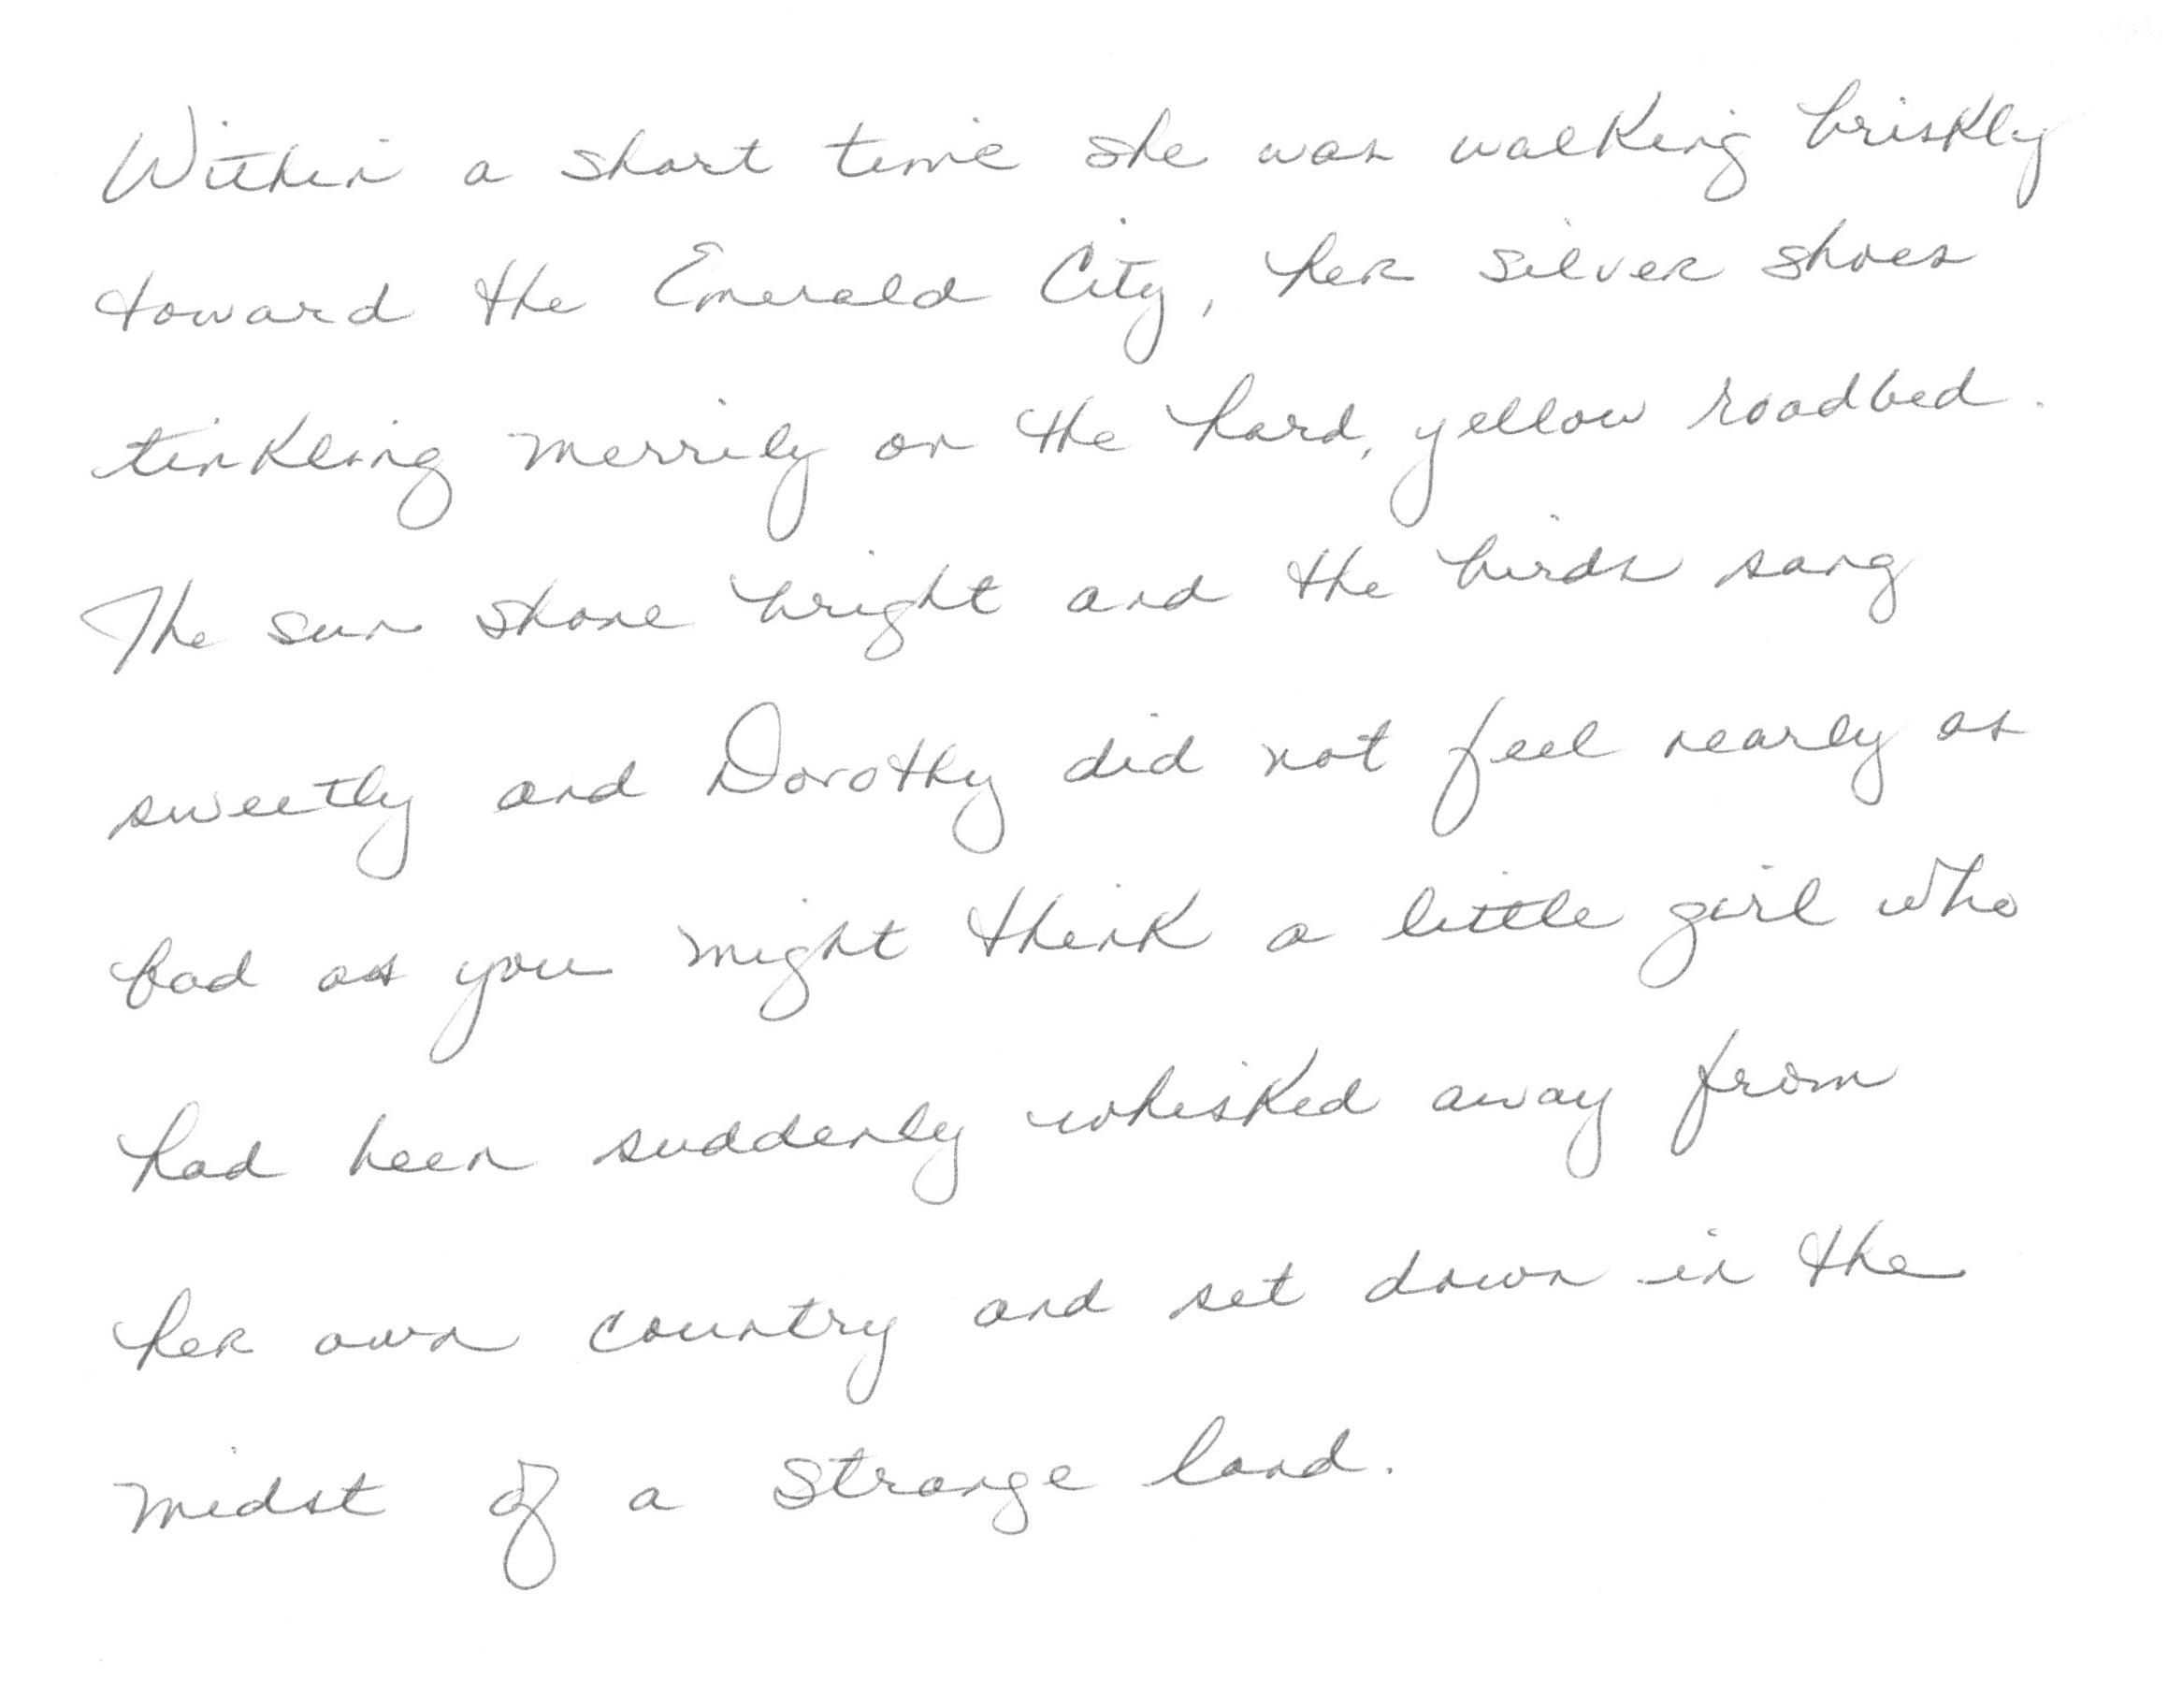 Within a short time she was walking briskly
toward the Emerald City, her silver shoes
tinkling merrily on the hard, yellow roadbed.
The sun shone bright and the birds sang
sweetly and Dorothy did not feel nearly as
bad as you might think a little girl who
had been suddenly whisked away from
her own country and set down in the
midst of a strange land.